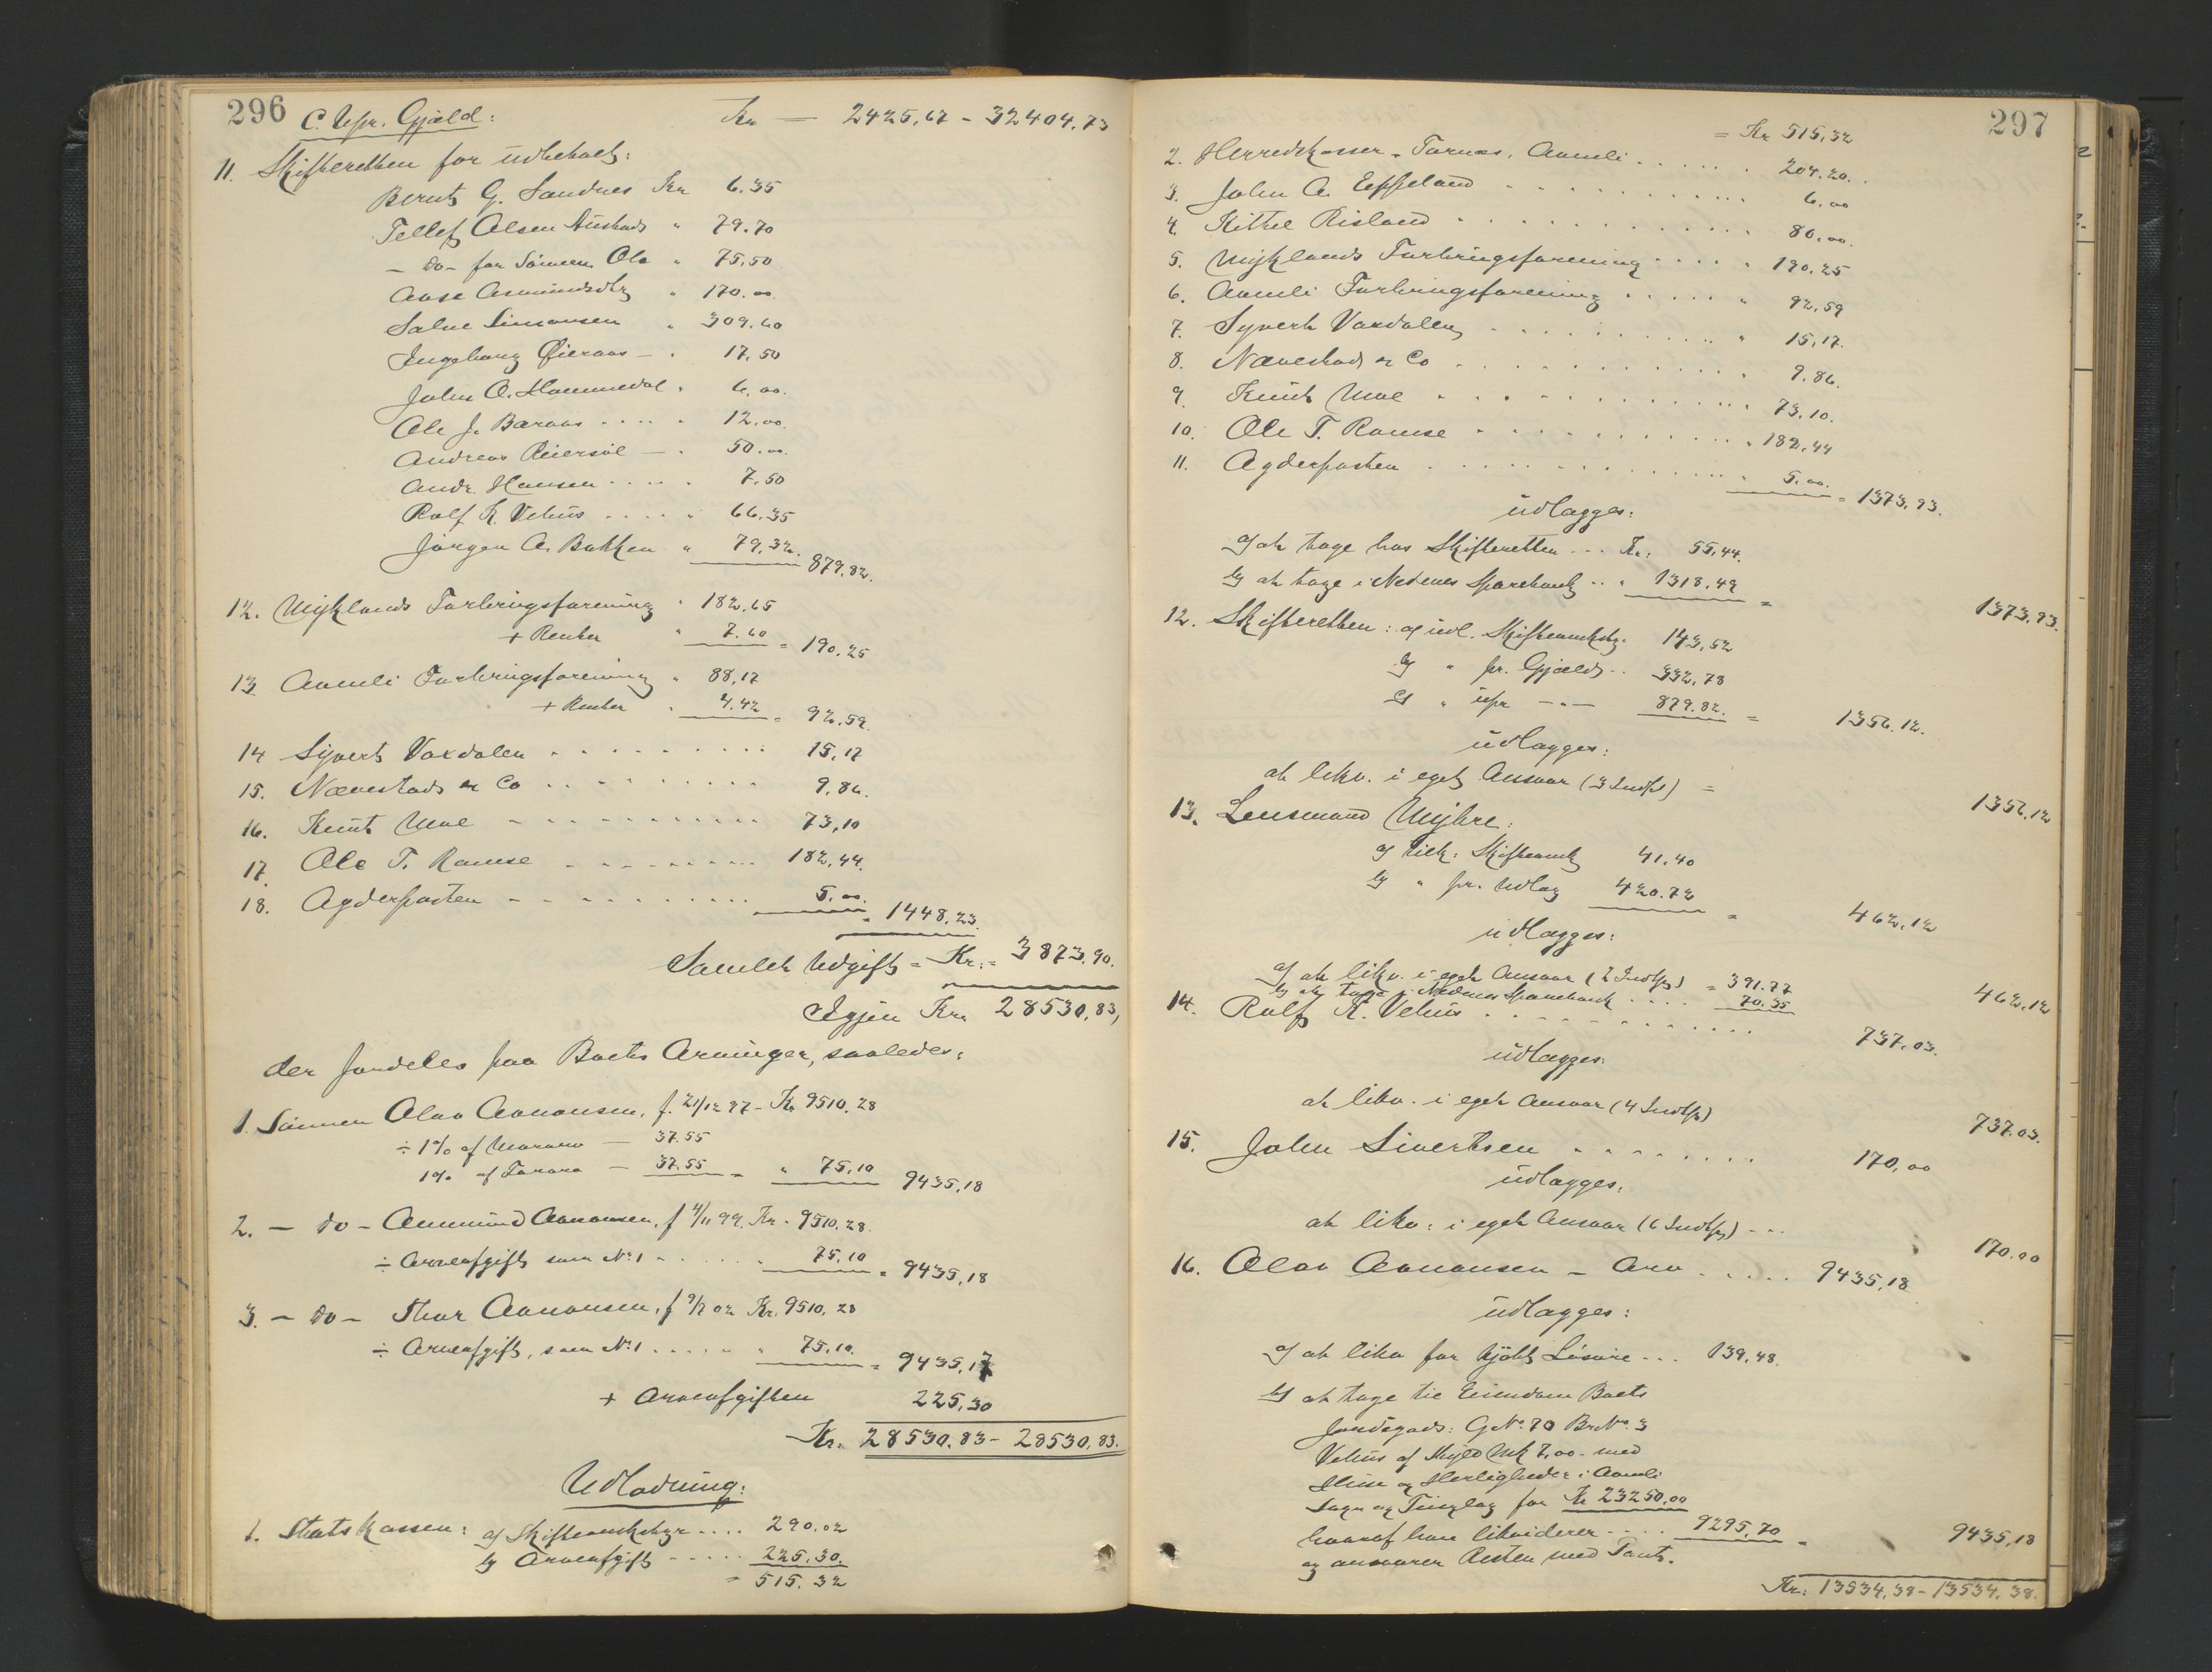 296
C. Upr. Gjæld: Kr — 2425,67 - 32404,73
11. Skifteretten for udbetalt:
Bernt G. Sandnes Kr 6.35
Tellef Olsen Austad " 79.70
- do - for Sønnen Ola " 75,50
Aase Asmundsdtr " 170.00
Salve Simonsen " 309.60
Ingeborg Øieraas — " 17,50
John O. Hammedal " 6,00.
Ole J. Baraas . . . . " 12.00.
Andreas Reiersøl — " 50.00.
Andr. Hansen . . . . " 7.50
Rolf K. Vehus . . . . " 66,35
Jørgen A. Bakken " 79,32. 879,82.
12. Myklands Forbrugsforening " 182,65
+ Renter " 7.60 = 190.25
13. Aamli Forbrugsforening " 88,17
+ Renter " 4.42 = 92,59.
14 Syvert Vaxdalen . . . . . . . . 15,17
15. Nævestad & Co . . . . . . . . 9,86.
16. Knut Moe . . . . . . . . 73,10
17. Ole T. Ramse . . . . . . . . 182,44.
18. Agderposten . . . . . . . . 5,00. = 1448,23.
Samlet Udgift = Kr: = 3873,90.
Igjen Kr. 28530,83,
der fordeles paa Boets Arvinger, saaledes:
1. Sønnen Olav Aanonsen, f. 21/12 97 - Kr 9510.28
÷ 1% af Morarv — 37.55
1% af Fararv — 37.55 = " 75,10 9435,18
2. - do - Aanund Aanonsen, f 4/11 99. Kr. 9510.28.
÷ Arveafgift som No 1 . . . . . . 75,10 = 9435,18
3. - do - Thor Aanonsen, f 9/2 02 Kr. 9510,28
÷ Arveafgift, som No 1 . . . . . " 75,10. = 9435,17
+ Arveafgiften 225,30
Kr. 28530,83 - 28530,83.
Udlodning:
1. Statskassen: a) Skifteomkstgr . . . . 290.02
b) Arveafgift . . . . . 225,30.
= 515.32
297
= Kr 515,32
2. Herredskasser. Tornes, Aamli . . . . . . 204.20.
3. John A. Eppeland . . . . . . . . 6.00
4. Kittel Risland . . . . . . . . 80,00.
5. Myklands Forbrugsforening . . . . " 190.25
6. Aamli Forbrugsforening . . . . . " 92,59
7. Syvert Vaxdalen . . . . . . . . 15,17.
8. Nævestad & Co . . . . . . . . 9,86.
9. Knut Moe . . . . . . . . 73,10.
10. Ole T. Ramse . . . . . . . . 182,44
11. Agderposten . . . . . . . . 5,00. = 1373,93.
udlægges:
a) at tage hos Skifteretten . . . Kr: 55,44.
b) at tage i Nedenes Sparebank . . " 1318,49 = 1373,93.
12. Skifteretten: a) udl. Skifteomkstg. 143,52
b) " pr. Gjæld . . 332,78
c) " upr — " — 879.82. = 1356.12.
udlægges:
at likv. i eget Ansvar (3 Indtpt) = 1356.12
13. Lensmand Myhre:
a) tilk. Skifteomk 41.40
b) " pr. Udlæg 420.72 = 462,12
udlægges:
a) at likv. i eget Ansvar (2 Indtpt) = 391.77
b) at tage i Nedenes Sparebank . . . . 70.35 462,12
14. Rolf K. Vehus . . . . . . . . 737.03.
udlægges:
at likv. i eget Ansvar (4 Indtpt) 737.03.
15. John Sivertsen . . . . . . . . 170,00
udlægges:
at likv: i eget Ansvar (6 Indtpt) - . . 170.00
16. Olav Aanonsen - Arv . . . . . 9435,18
udlægges:
a) at likv for kjøbt Løsøre . . . 139,48.
b) at tage til Eiendom Boets
Jordegods: GNo 70 BrNo 3
Vehus af Skyld Mk 7,00 - med
Huse og Herligheder i Aamli
Sogn og Tinglag for Kr 23250.00
hvoraf han likviderer . . . . 9295,70 = 9435,18
og ansvarer Resten med Pant.
Kr: 13534,38 - 13534.38.